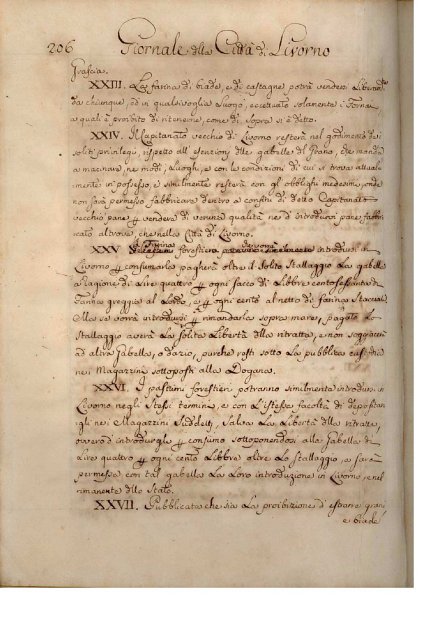 206 Giornale della Città di Livorno
Grascia.
XXIII. La farina di biade, e di castagne potrà vendersi liberamte
da chiunque, ed in qualsivoglia luogo, eccettuato solamente i Fornai,
a quali è proibito di ritenerne, come di sopra si è detto.
XXIV. Il Capitanato vecchio di Livorno resterà nel godimento de
soliti privilegi, rispetto all esenzioni delle gabelle del Grano, che manda
a macinare, ne modi, luoghi, e con le condizioni di cui si trova attual
mente in possesso, e similmente resterà con gli obblighi medesimi, onde
non sarà permesso fabbricare dentro a confini di detto Capitanato
vecchio pane p vendere di veruna qualità ne d introdurvi pane fabbri
cato altrove, che nella Città di Livorno.
XXV La Farina forestiera introdursi in
Livorno p consumarla pagherà oltre il solito stallaggio la gabella
a ragione di lire quattro p ogni sacco di libbre centosessanta di
farina greggia al lordo, e p ogni cento al netto di farina stacciata
Ma se vorrà introdursi p rimandarla sopra mare, pagato lo
stallaggio averà la solita libertà della ritratta, e non soggiacerà
ad altra gabella, o dazio, purche resti sotto la pubblica custodia
ne Magazzini sottoposti alla Dogana.
XXVI. I pastumi forestieri potranno similmente introdursi in
Livorno negli stessi termini, e con l istessa facoltà di depositar
gli nei Magazzini suddetti, salva la libertà della ritratta,
ovvero d introdurgli p consumo sottoponendosi alla gabella di
lire quattro p ogni cento libbre oltre lo stallaggio, e sarà
permessa con tal gabella la loro introduzione in Livorno, e nel
rimanente dello Stato.
XXVII. Pubblicata che sia la proibizione d estrarre grani
e biade